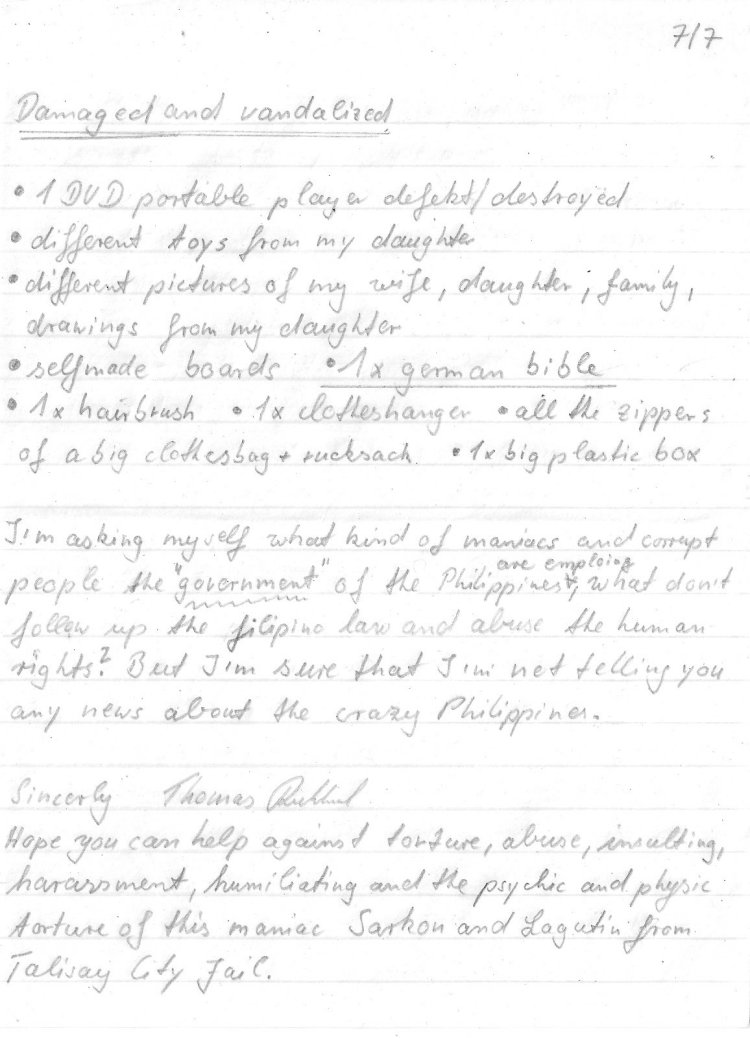 7/7
Damaged and vandalized
• 1 DVD portable player defekt/destroyed
• different toys from my daughter
• different pictures of my wife, daughter, family,
drawings from my daughter
• selfmade boards • 1x german bible
• 1x hairbrush • 1x clotheshanger • all the zippers
of a big clothesbag + rucksack • 1x big plastic box
I'm asking myself what kind of maniacs and corrupt
are emploing
people the "government" of the Philippines, what don't
follow up the filipino law and abuse the human
rights? But I'm sure that I'm not telling you
any news about the crazy Philippines.
Sincerly Thomas
Hope you can help against torture, abuse, insulting,
harassment, humiliating and the psychic and physic
torture of this maniac Sarkon and Lagutin from
Talisay City Jail.